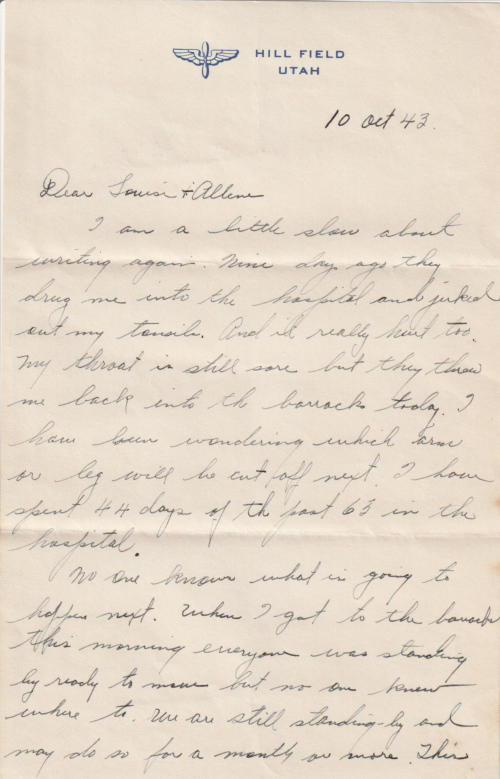 HILL FIELD
UTAH
10 Oct 43.
Dear Louise + Allene
I am a little slow about
writing again. Nine days ago they
drug me into the hospital and jerked
out my tonsils. And it really hurt too.
My throat is still sore but they threw
me back into th barracks today. I
have been wondering which arm
or leg will be cut off next. I have
spent 44 days of th past 63 in the
hospital.
No one knows what is going to
happen next. When I got to the barracks
this morning everyone was standing
by ready to move but no one knew
where to. We are still standing-by and
may do so for a month or more. This